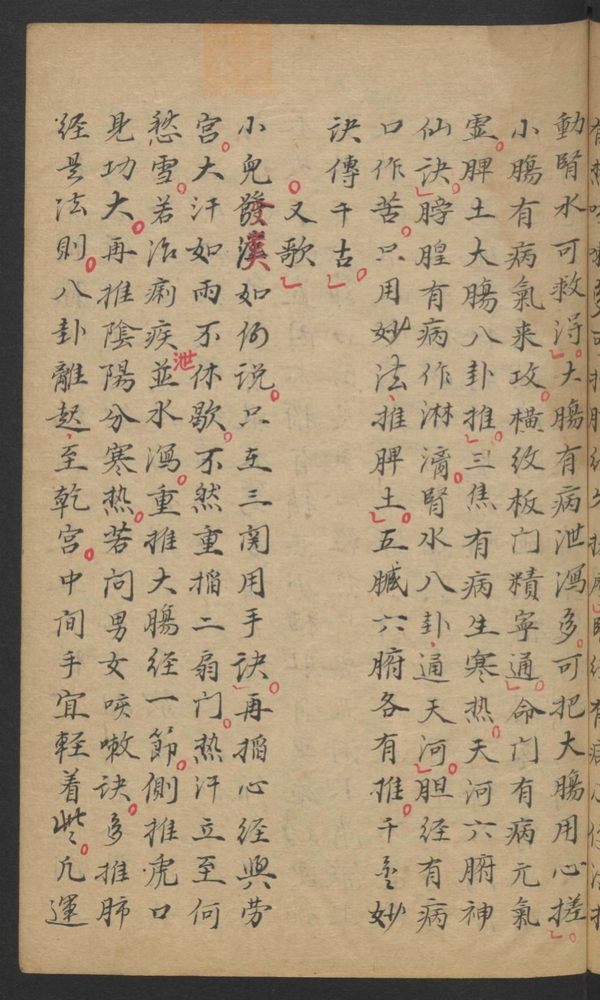 動腎水可救淂大腸有病泄瀉多可把大腸用心搓
小腸有病氣来攻橫紋板门精寧通命门有病元氣
霊脾土大腸八卦推三焦有病生寒热天河六腑神
仙诀膀胱有病作淋㵧腎水八卦通天河胆经有病
口作苦只用妙法推脾土五臓六腑各有推千金妙
诀傳千古
又歌
小皃發漢如何说只在三関用手诀再掐心经與劳
宫大汗如雨不休歇不然重掐二扇门热汗立至何
愁雪若治痢疾並水瀉重推大腸经一節側推虎口
泄
見功大再推陰陽分寒热若问男女咳嗽诀多推肺
经是法則八卦離起至乾宫中间手宜軽着些凡運